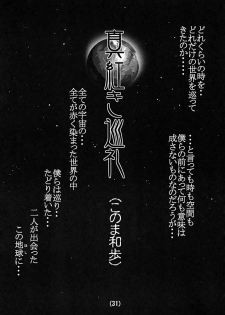 どれくらいの時を‥
どれだけの世界を巡って
きたのか‥‥
‥と言っても時も空間も
僕らの前にあって何も意味は
成さないものなのだろうが‥‥
真紅き巡礼
(このま和歩)
全ての宇宙の‥
全てが赤く染まった世界の中
僕らは巡り‥
たどり着いた‥‥
二人が出会った
この地球に‥‥
(31)